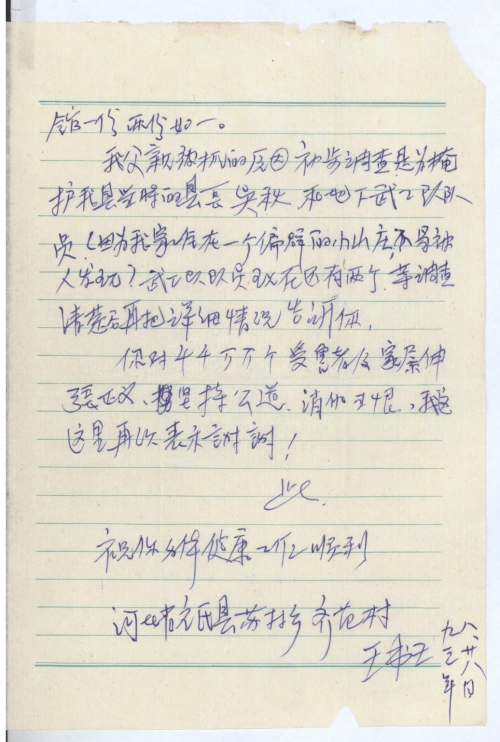 馆一份 两份如一。
我父亲被抓的原因初步调查是为掩
护我县当时的县长吴秋 和地下武工队队
员（因为我家住在一个偏僻的小山庄不易被
人发现）武工队队员现在还有两个，等调查
清楚后再把详细情况告诉你。
你对千千万万个受害者及家属伸
张正义、坚持公道、消他王恨，我在
这里再次表示谢谢！
此
祝你身体健康工作顺利
河北省元氏县苏村乡齐范村
王书王
九三年
八.廿八日